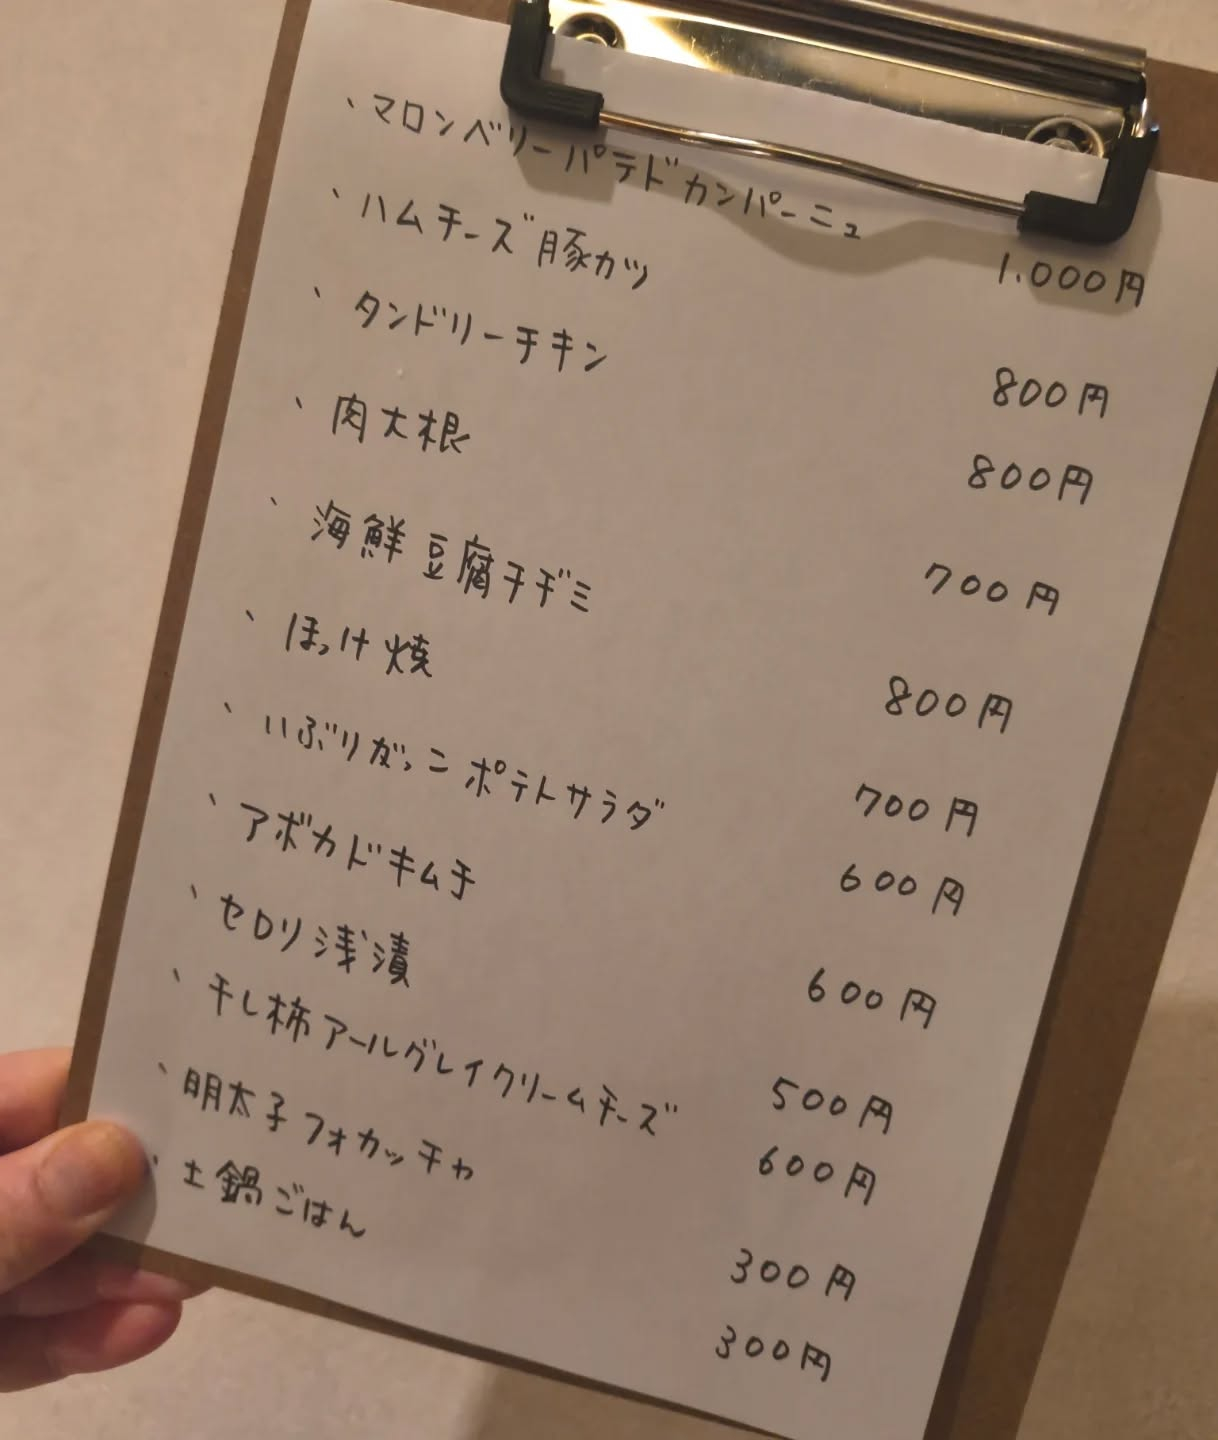 、マロンベリーパテドカンパーニュ 1.000円
、ハムチーズ豚カツ 800円
、タンドリーチキン 800円
、肉大根 700円
、海鮮豆腐チヂミ 800円
、ほっけ焼 700円
、いぶりがっこポテトサラダ 600円
、アボカドキムチ 600円
、セロリ浅漬 500円
、干し柿アールグレイクリームチーズ 600円
、明太子フォカッチャ 300円
、土鍋ごはん 300円